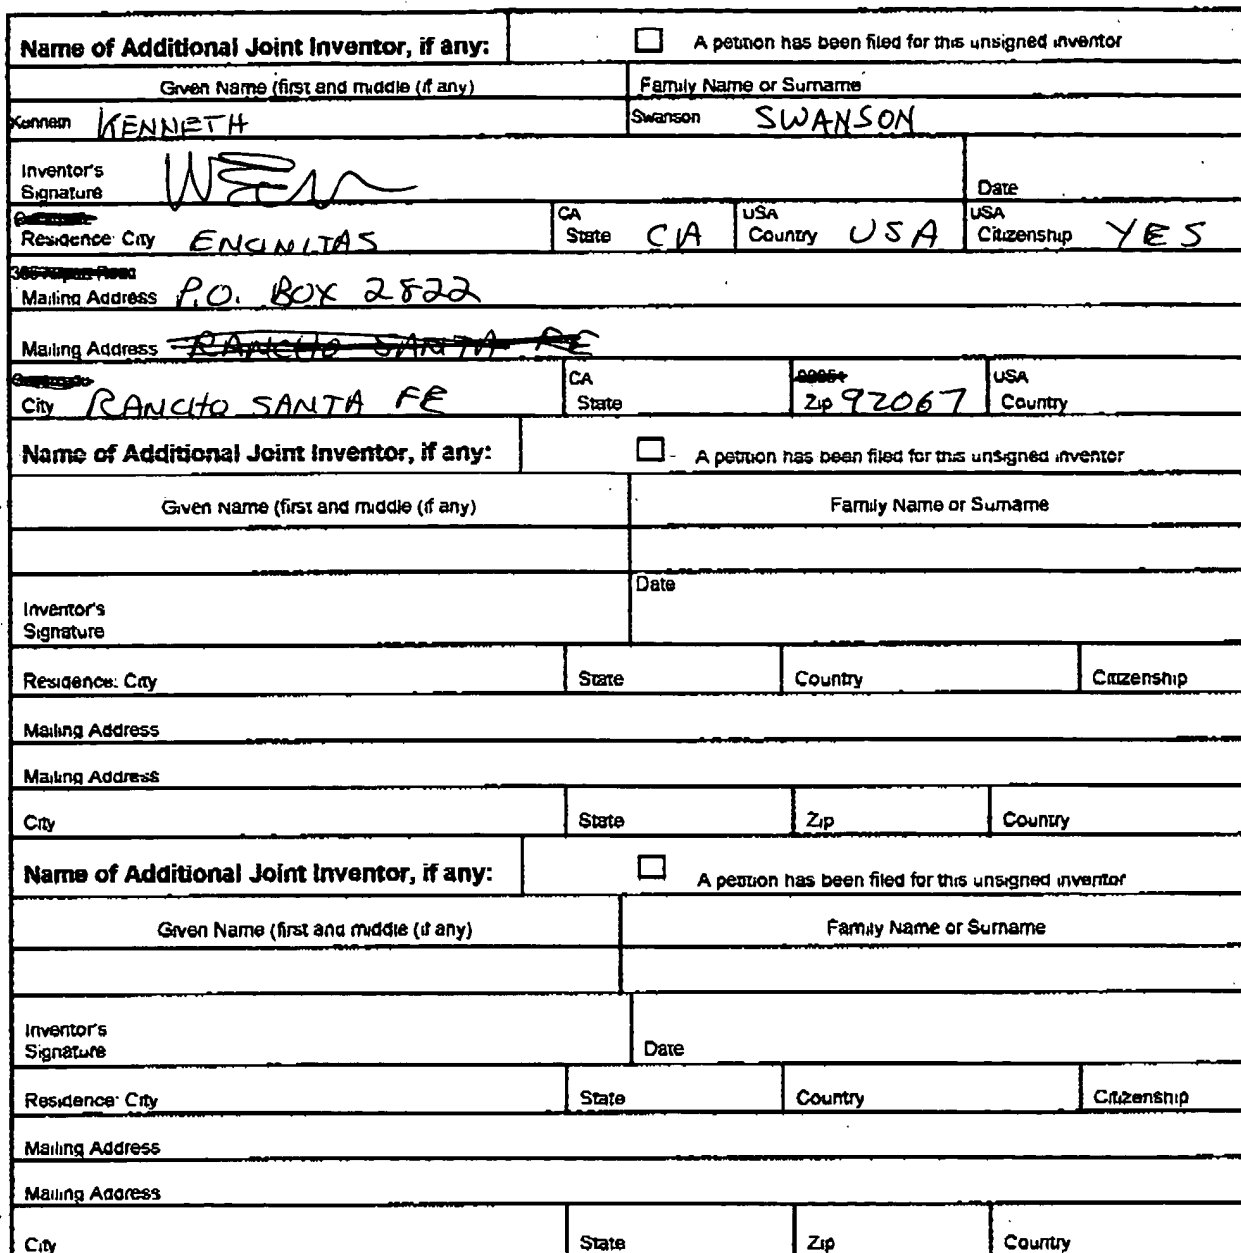 Name of Additional Joint Inventor, if any: A petition has been filed for this unsigned inventor
Given Name (first and middle (if any) Family Name or Surname
Kenneth KENNETH Swanson SWANSON
Inventor's
Signature Date
CA USA USA
Residence: City ENCINITAS State CA Country USA Citizenship YES
Mailing Address P.O. BOX 2822
Mailing Address RANCHO SANTA FE
CA USA
City RANCHO SANTA FE State Zip 92067 Country
Name of Additional Joint Inventor, if any: A petition has been filed for this unsigned inventor
Given Name (first and middle (if any) Family Name or Surname
Date
Inventor's
Signature
Residence: City State Country Citizenship
Mailing Address
Mailing Address
City State Zip Country
Name of Additional Joint Inventor, if any: A petition has been filed for this unsigned inventor
Given Name (first and middle (if any) Family Name or Surname
Inventor's
Signature Date
Residence: City State Country Citizenship
Mailing Address
Mailing Address
City State Zip Country